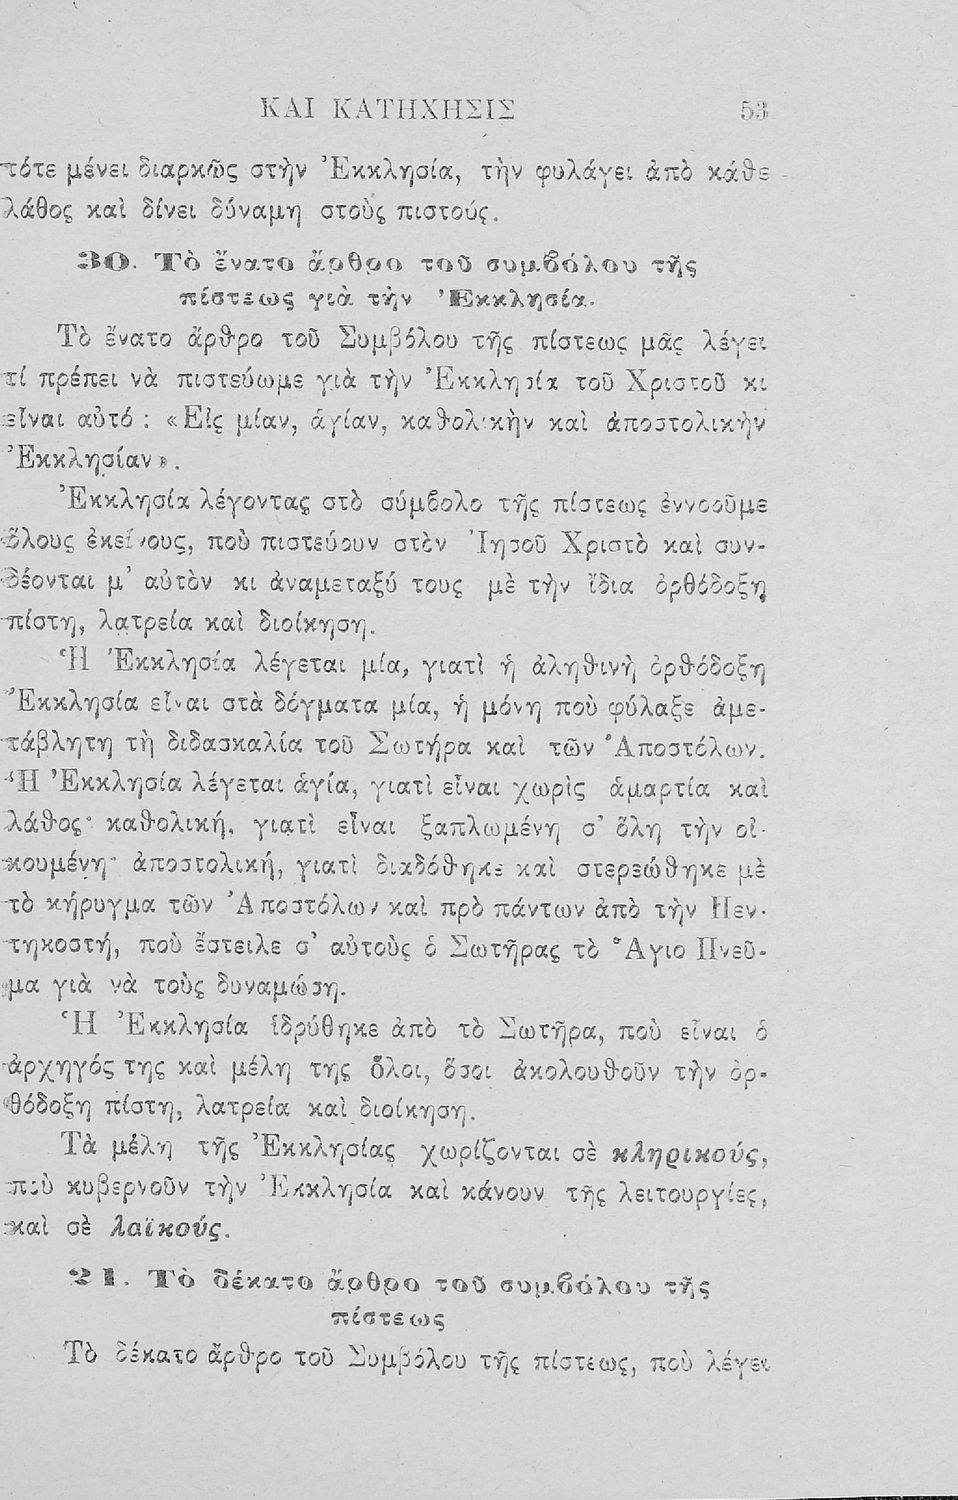 ΚΑΙ ΚΑΤΗΧΗΣΙΣ 53
τότε μένει διαρκῶς στὴν Ἐκκλησία, τὴν φυλάγει ἀπὸ κάθε
λάθος καὶ δίνει δύναμη στοὺς πιστούς.
30. Τὸ ἔνατο ἄρθρο τοῦ συμβόλου τῆς
πίστεως γιὰ τὴν Ἐκκλησία.
Τὸ ἔνατο ἄρθρο τοῦ Συμβόλου τῆς πίστεως μᾶς λέγει
τί πρέπει νὰ πιστεύωμε γιὰ τὴν Ἐκκλησία τοῦ Χριστοῦ κι
εἶναι αὐτό : «Εἰς μίαν, ἁγίαν, καθολικὴν καὶ ἀποστολικὴν
Ἐκκλησίαν».
Ἐκκλησία λέγοντας στὸ σύμβολο τῆς πίστεως ἐννοοῦμε
ὅλους ἐκείνους, ποὺ πιστεύουν στὸν Ἰησοῦ Χριστὸ καὶ συν-
δέονται μ' αὐτὸν κι ἀναμεταξύ τους μὲ τὴν ἴδια ὀρθόδοξη
πίστη, λατρεία καὶ διοίκηση.
Ἡ Ἐκκλησία λέγεται μία, γιατὶ ἡ ἀληθινὴ ὀρθόδοξη
Ἐκκλησία εἶναι στὰ δόγματα μία, ἡ μόνη ποὺ φύλαξε ἀμε-
τάβλητη τὴ διδασκαλία τοῦ Σωτήρα καὶ τῶν Ἀποστόλων.
Ἡ Ἐκκλησία λέγεται ἁγία, γιατὶ εἶναι χωρὶς ἁμαρτία καὶ
λάθος· καθολική, γιατὶ εἶναι ξαπλωμένη σ' ὅλη τὴν οἰ-
κουμένη· ἀποστολική, γιατὶ διαδόθηκε καὶ στερεώθηκε μὲ
τὸ κήρυγμα τῶν Ἀποστόλων καὶ πρὸ πάντων ἀπὸ τὴν Πεν-
τηκοστή, ποὺ ἔστειλε σ' αὐτοὺς ὁ Σωτῆρας τὸ Ἅγιο Πνεῦ-
μα γιὰ νὰ τοὺς δυναμώση.
Ἡ Ἐκκλησία ἱδρύθηκε ἀπὸ τὸ Σωτῆρα, ποὺ εἶναι ὁ
ἀρχηγός της καὶ μέλη της ὅλοι, ὅσοι ἀκολουθοῦν τὴν ὀρ-
θόδοξη πίστη, λατρεία καὶ διοίκηση.
Τὰ μέλη τῆς Ἐκκλησίας χωρίζονται σὲ κληρικούς,
ποὺ κυβερνοῦν τὴν Ἐκκλησία καὶ κάνουν τῆς λειτουργίες,
καὶ σὲ λαϊκούς.
21. Τὸ δέκατο ἄρθρο τοῦ συμβόλου τῆς
πίστεως
Τὸ δέκατο ἄρθρο τοῦ Συμβόλου τῆς πίστεως, ποὺ λέγει